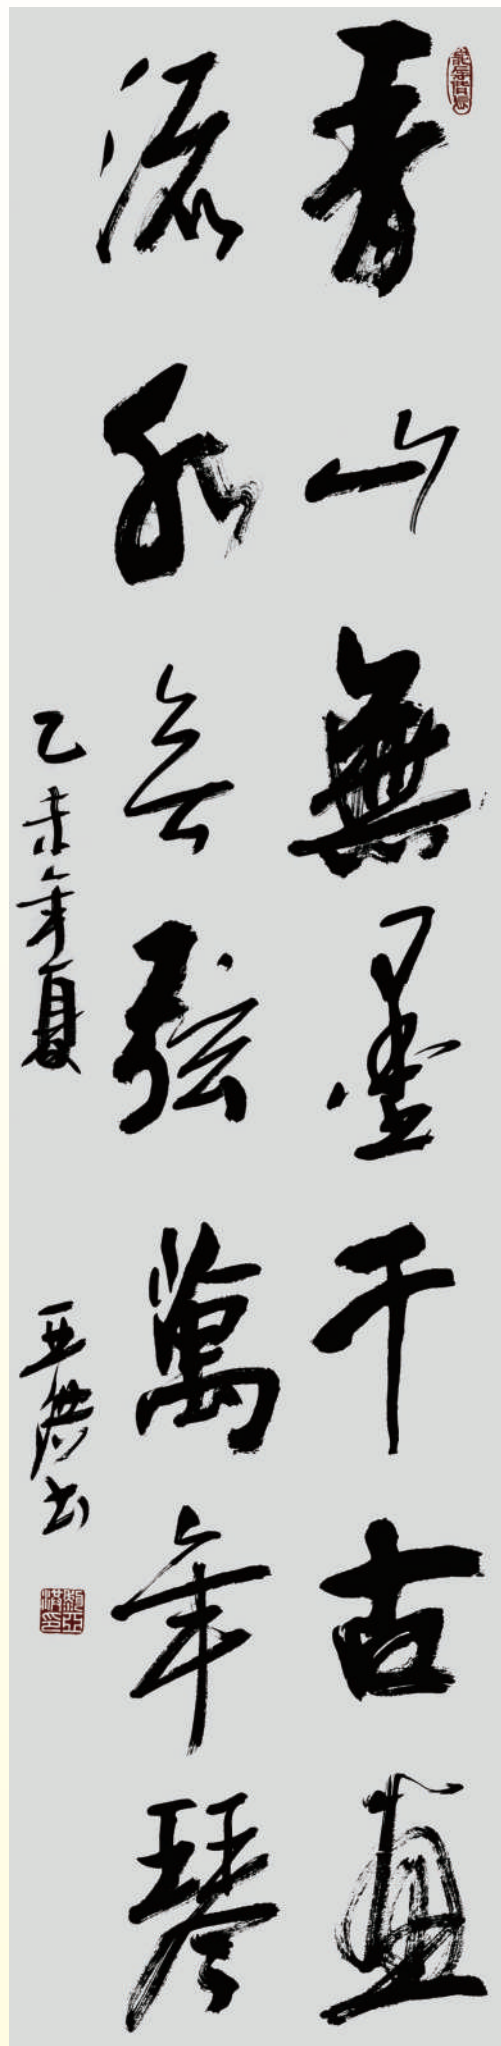 青山無墨千古畫
流水無弦萬年琴
乙未年夏
亞洪書